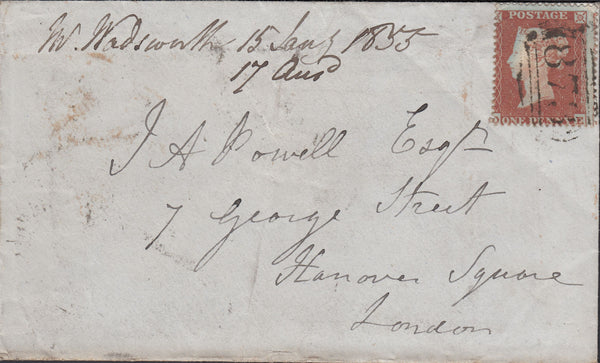 W. Wadsworth 15 Jany 1855
17 Ansd
POSTAGE
ONE PENNY
J A Powell Esqr
7 George Street
Hanover Square
London